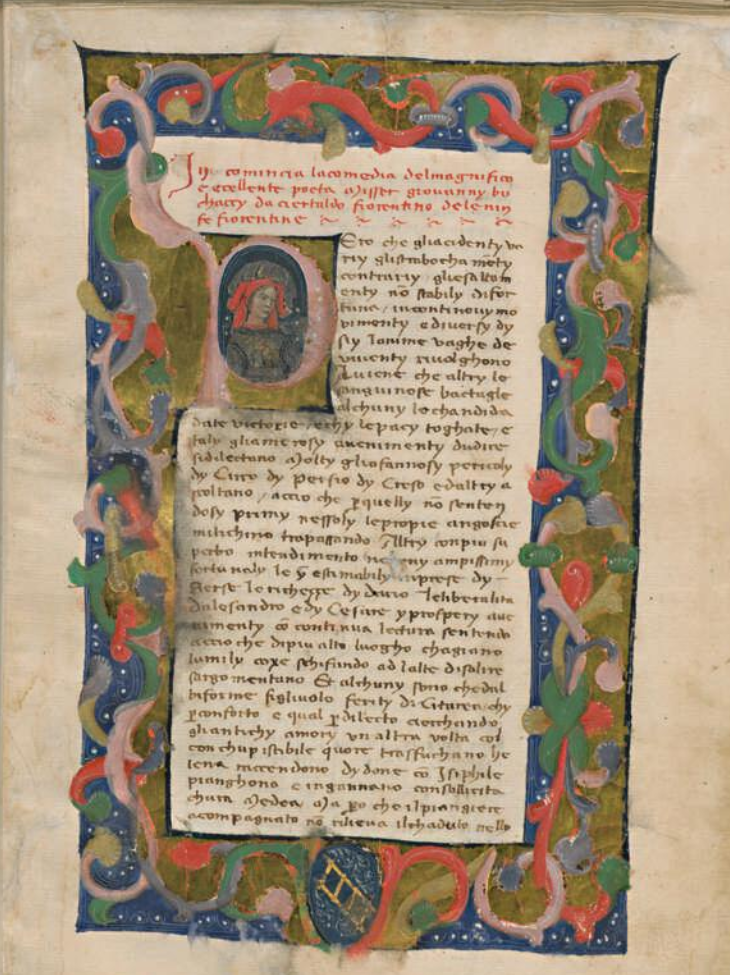 In comincia lacomedia delmagnifico
e ecellente poeta Misser giovanny bo
chaccy da ciertaldo fiorentino delenin
fe fiorentine
Ero che gliacidenty va
riy glistrabocha mēty
contrariy gliesaltam
enty nō stabily difor
tuna / incontinovy mo
vimenty e diversy dy
siy lanime vaghe de
viventy rivolghono
Aviene che altry le
sanguinose battagle
alchuny lechandida
date victorie echy lepacy toghate / e
taly gliamorosy avenimenty dudire
sidilectano Molty gliafannosy pericoly
dy Ciro dy persio dy Creso edaltry a
scoltano / accio che p quelly nō senten
dosy primy nessoly lepropie angoscie
mitichino trapassando Altry conpiu su
perbo intendimento ampissimy
fortunaly le estimabily inprese dy
Serse lerichezze dy dario leliberalita
dalesandro e dy Cesare y prospery ave
nimenty cō continua lectura sentendo
accio che dipiu alto luogho chagiano
lumily coxe schifando ad lalte disalire
sargomentano Et alchuny sono chedal
biforme figliuolo ferity di Citarea chy
p conforto e qual p dilecto cierchando
gliantichy amory un altra volta col
conchupistibile quore trasfuchano he
lena raccendono dydone cō Isiphile
pianghono e ingannano consollicita
chura Medea Ma po che ilpiangiere
acompagnato nō rilieva ilchaduto nelle